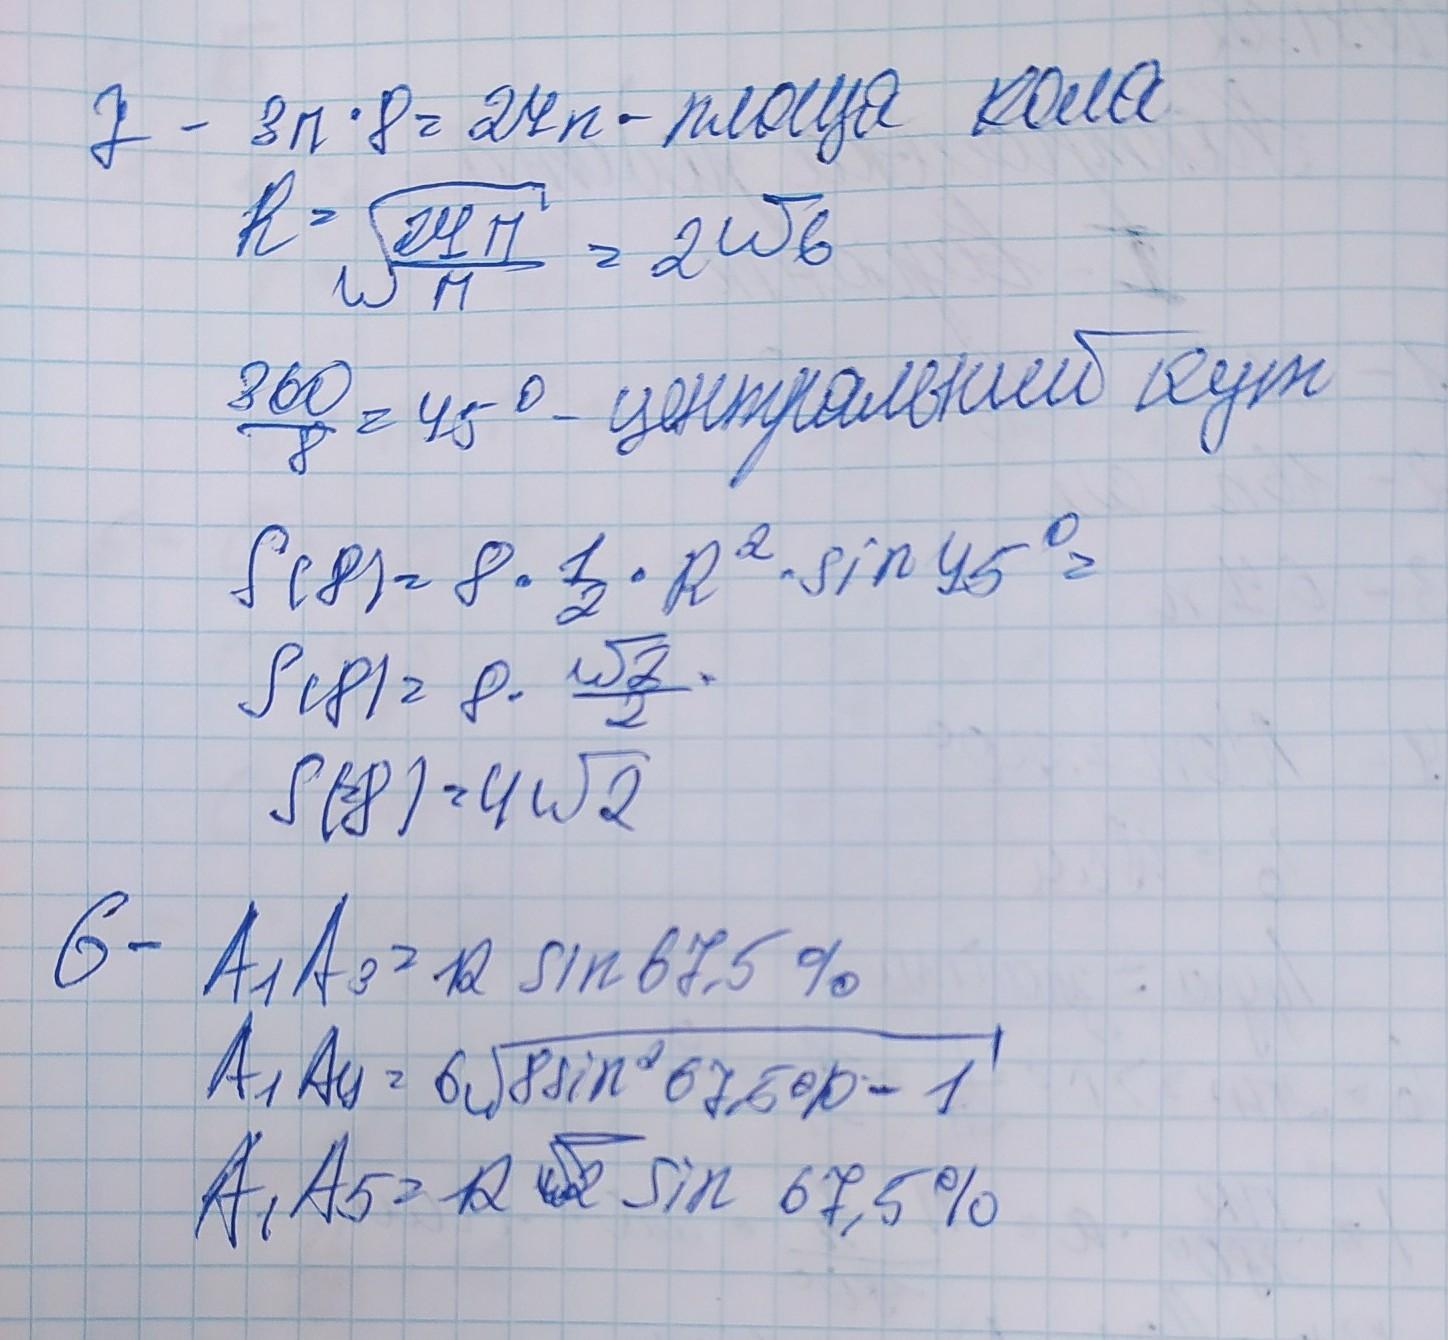 7 - 3π · 8 = 24π - площа кола
R = √(24π/π) = 2√6
360/8 = 45° - центральний кут
S(8) = 8 · 1/2 · R² · sin 45° =
S(8) = 8 · √2/2 ·
S(8) = 4√2
6 - A₁A₃ = 12 sin 67,5%
A₁A₄ = 6√8sin² 67,5 - 1
A₁A₅ = 12 √2 sin 67,5%